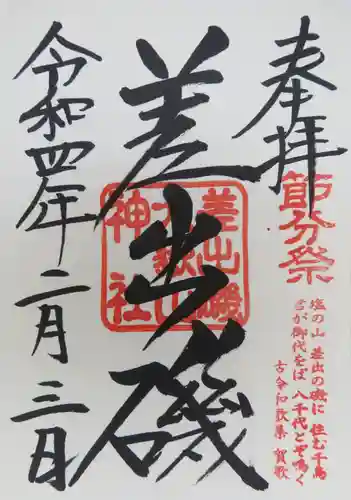 奉拝
節分祭
塩の山 差出の磯に 住む千鳥
君が御代をば 八千代とぞ鳴く
古今和歌集 賀歌
差出磯
差出磯
大嶽山
神社
令和四年二月三日